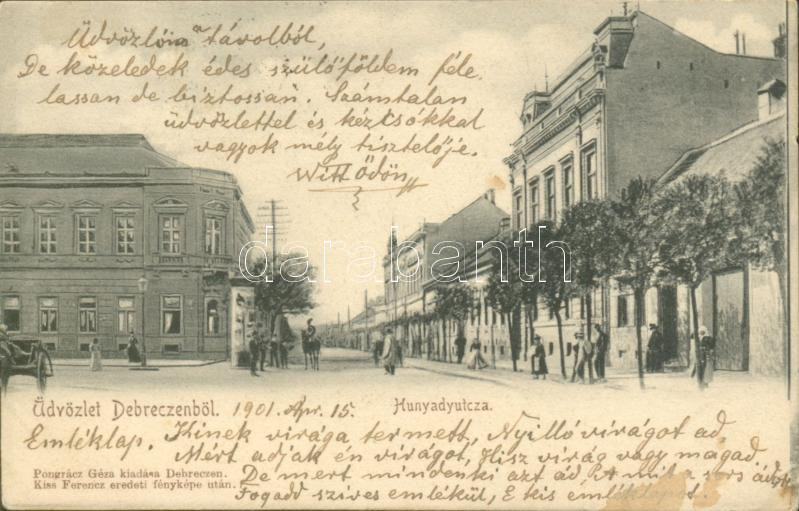 Üdvözlöm a távolból,
De közeledek édes szülőföldem féle,
lassan de biztossan. Számtalan
üdvözlettel és kézcsókkal
vagyok mély tisztelője.
Witt Ödön
darabanth
Üdvözlet Debreczenböl. 1901. Apr. 15. Hunyadyutcza.
Emléklap. Kinek virága termett, Nyilló virágot ad,
Mért adjak én virágot, Hisz virág vagy magad
Pongrácz Géza kiadása Debreczen. De mert mindenki azt ád, A mit a sors
Kiss Ferencz eredeti fényképe után. Fogadd szives emlékül, E kis emléklapot.